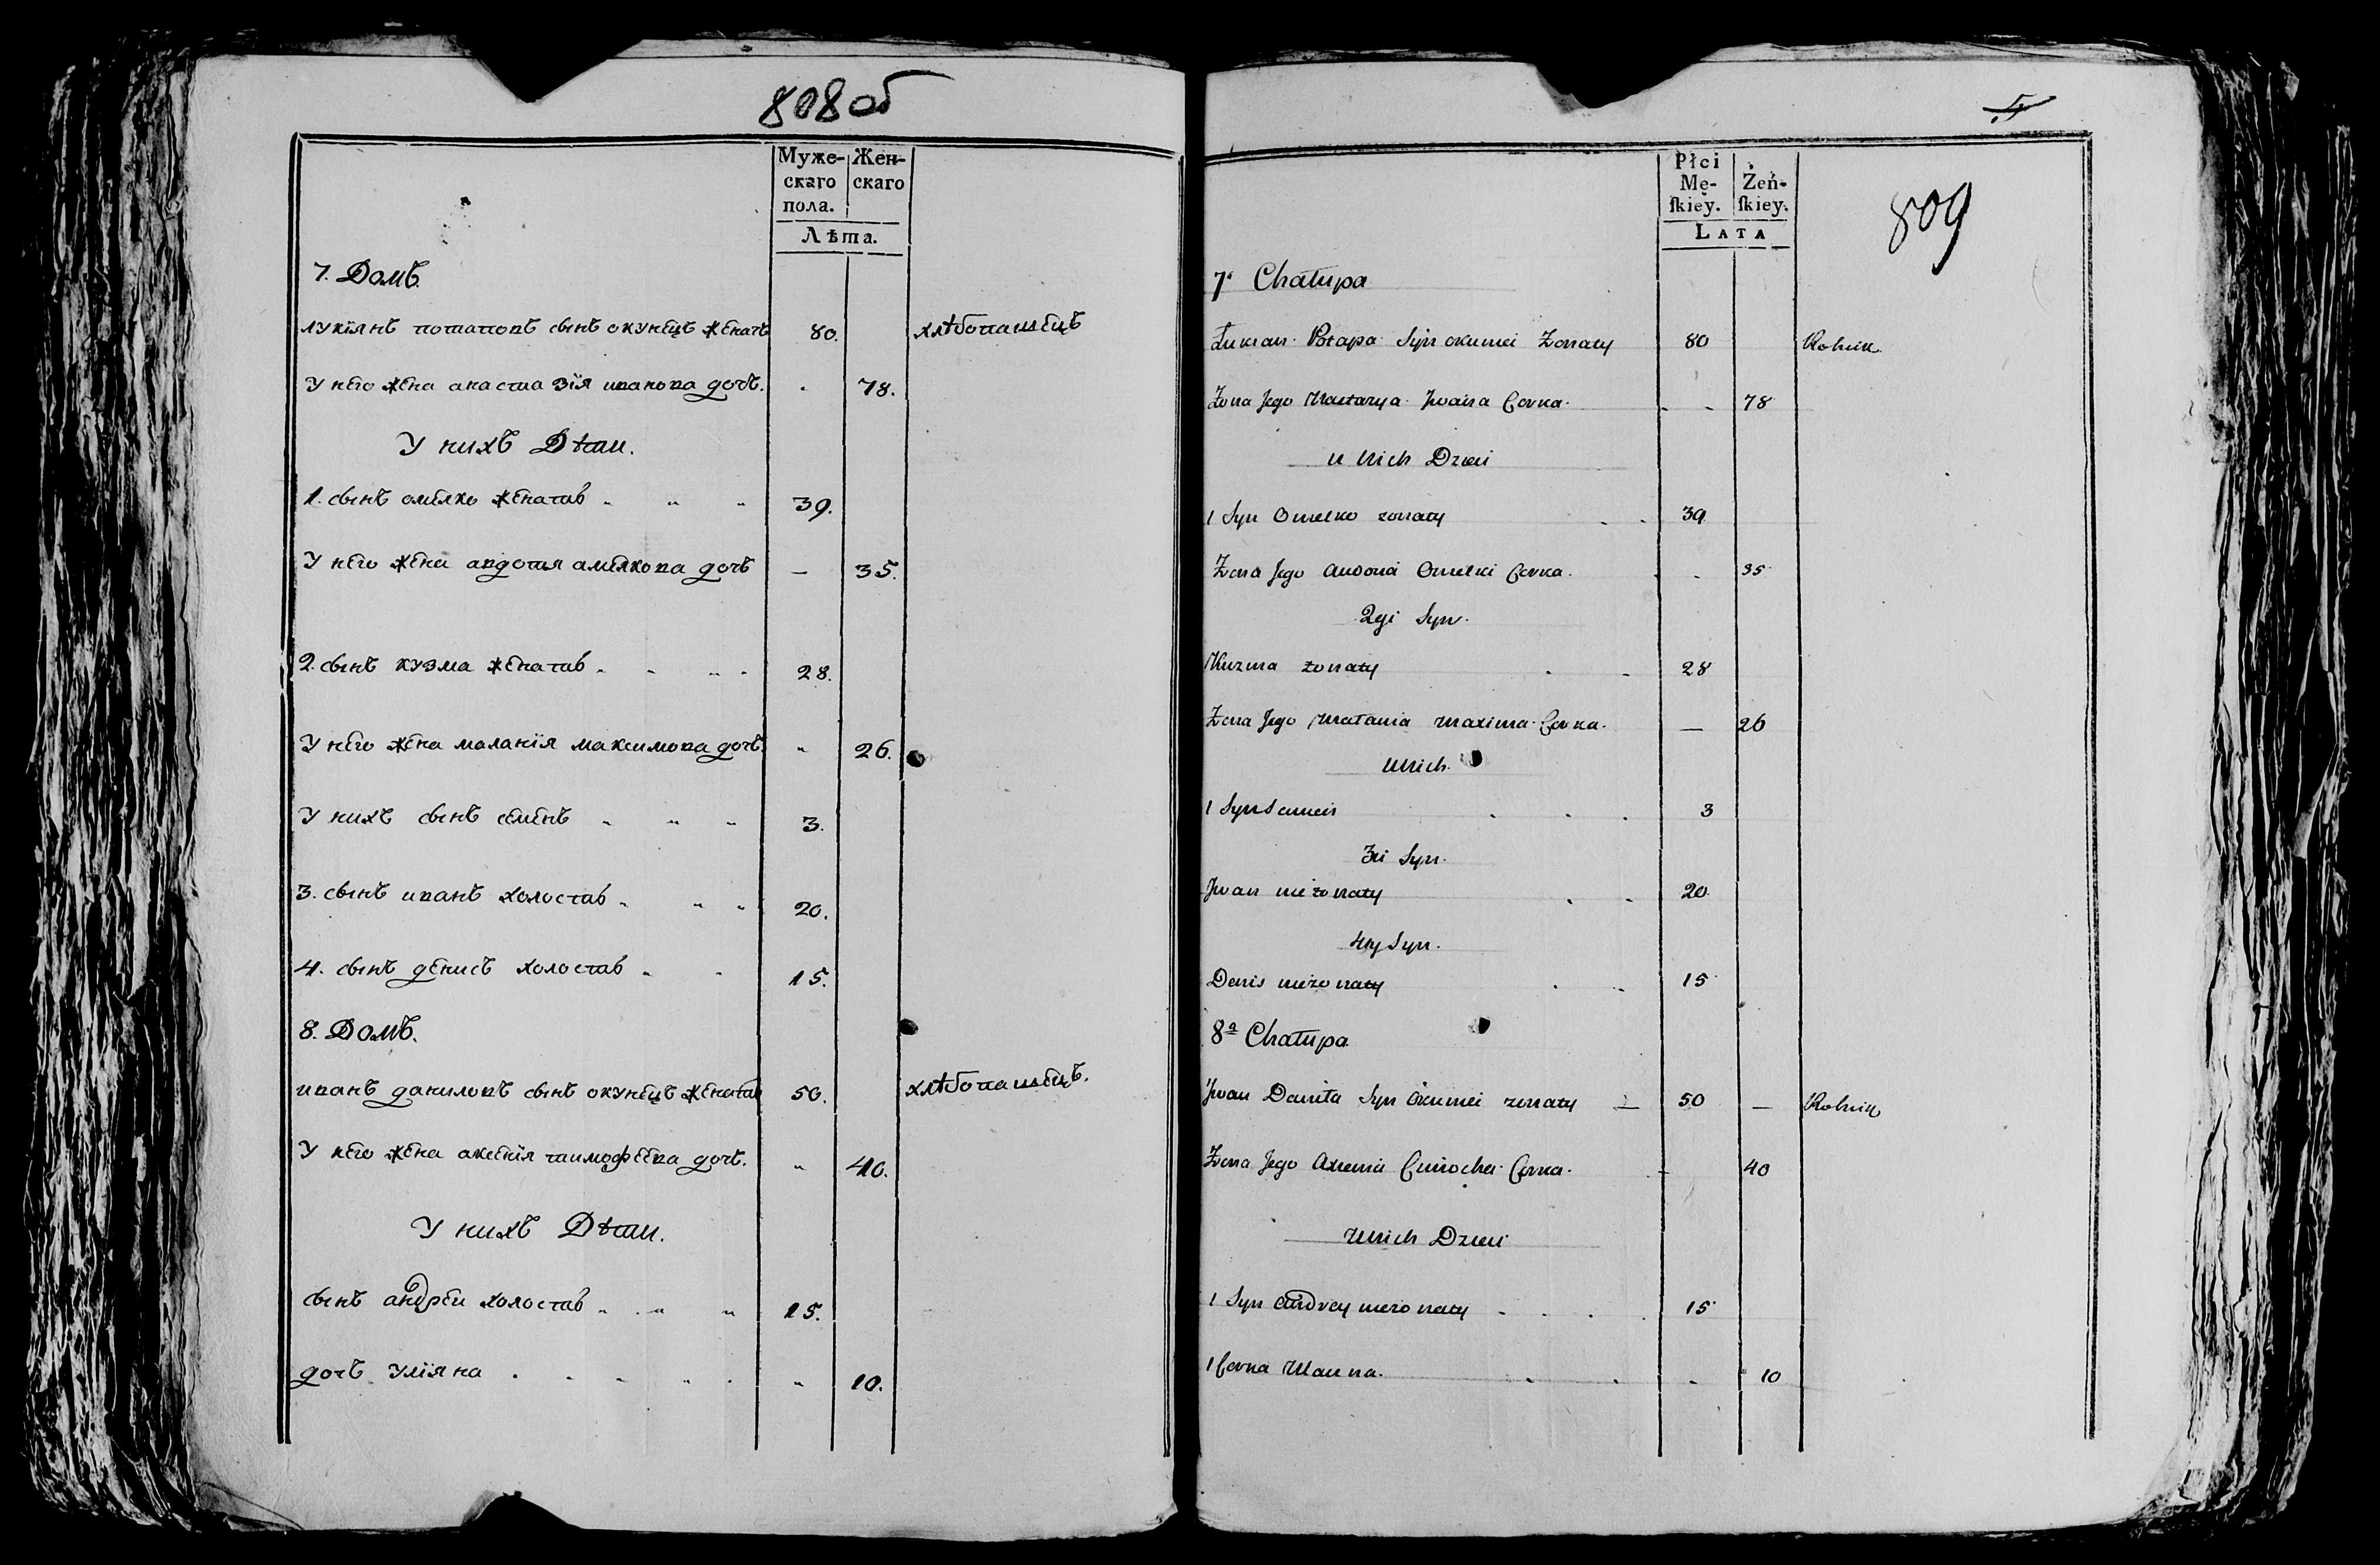 808 об
Муже-
скаго
пола.
Жен-
скаго
Лѣта.
7. Домъ.
лукїянъ потаповъ сынъ окунецъ женатъ 80. хлѣбопашецъ
У него жена анастазїя иванова дочь. 78.
У нихъ Дѣти.
1. сынъ омелко женатъ 39.
У него жена авдотія амелкова дочь — 35.
2. сынъ кузма женатъ 28.
У него жена маланїя максимова дочь. 26.
У нихъ сынъ семенъ 3.
3. сынъ иванъ холостъ 20.
4. сынъ денисъ холостъ 15.
8. Домъ.
иванъ даниловъ сынъ окунецъ женатъ 50. хлѣбопашецъ.
У него жена аксенїя тимофеева дочь. 40.
У нихъ Дѣти.
сынъ андреи холостъ 15.
дочь улїяна 10.
809
Płci
Mę-
skiey.
Żeń-
skiey.
Lata
7. Chałupa
Łukian Potapa Syn okuniei Zonaty 80 Rolnik
Zona Jego Nastazya Jwana Corka. 78
u nich Dzieci
1 Syn Omelko zonaty 39
Zona Jego Omelki Corka. 35
2gi Syn.
Kuzma zonaty 28
Zona Jego Małania maxima Corka. — 26
U nich.
1 Syn Semen 3
3ci Syn.
Jwan niezonaty 20
4ty Syn.
Denis niezonaty 15
8ª Chałupa
Jwan Daniła Syn okuniei zonaty — 50 — Rolnik
Zona Jego Axenia Corka. 40
U nich Dzieci
1 Syn Andrey niezonaty 15
1 Corka 10